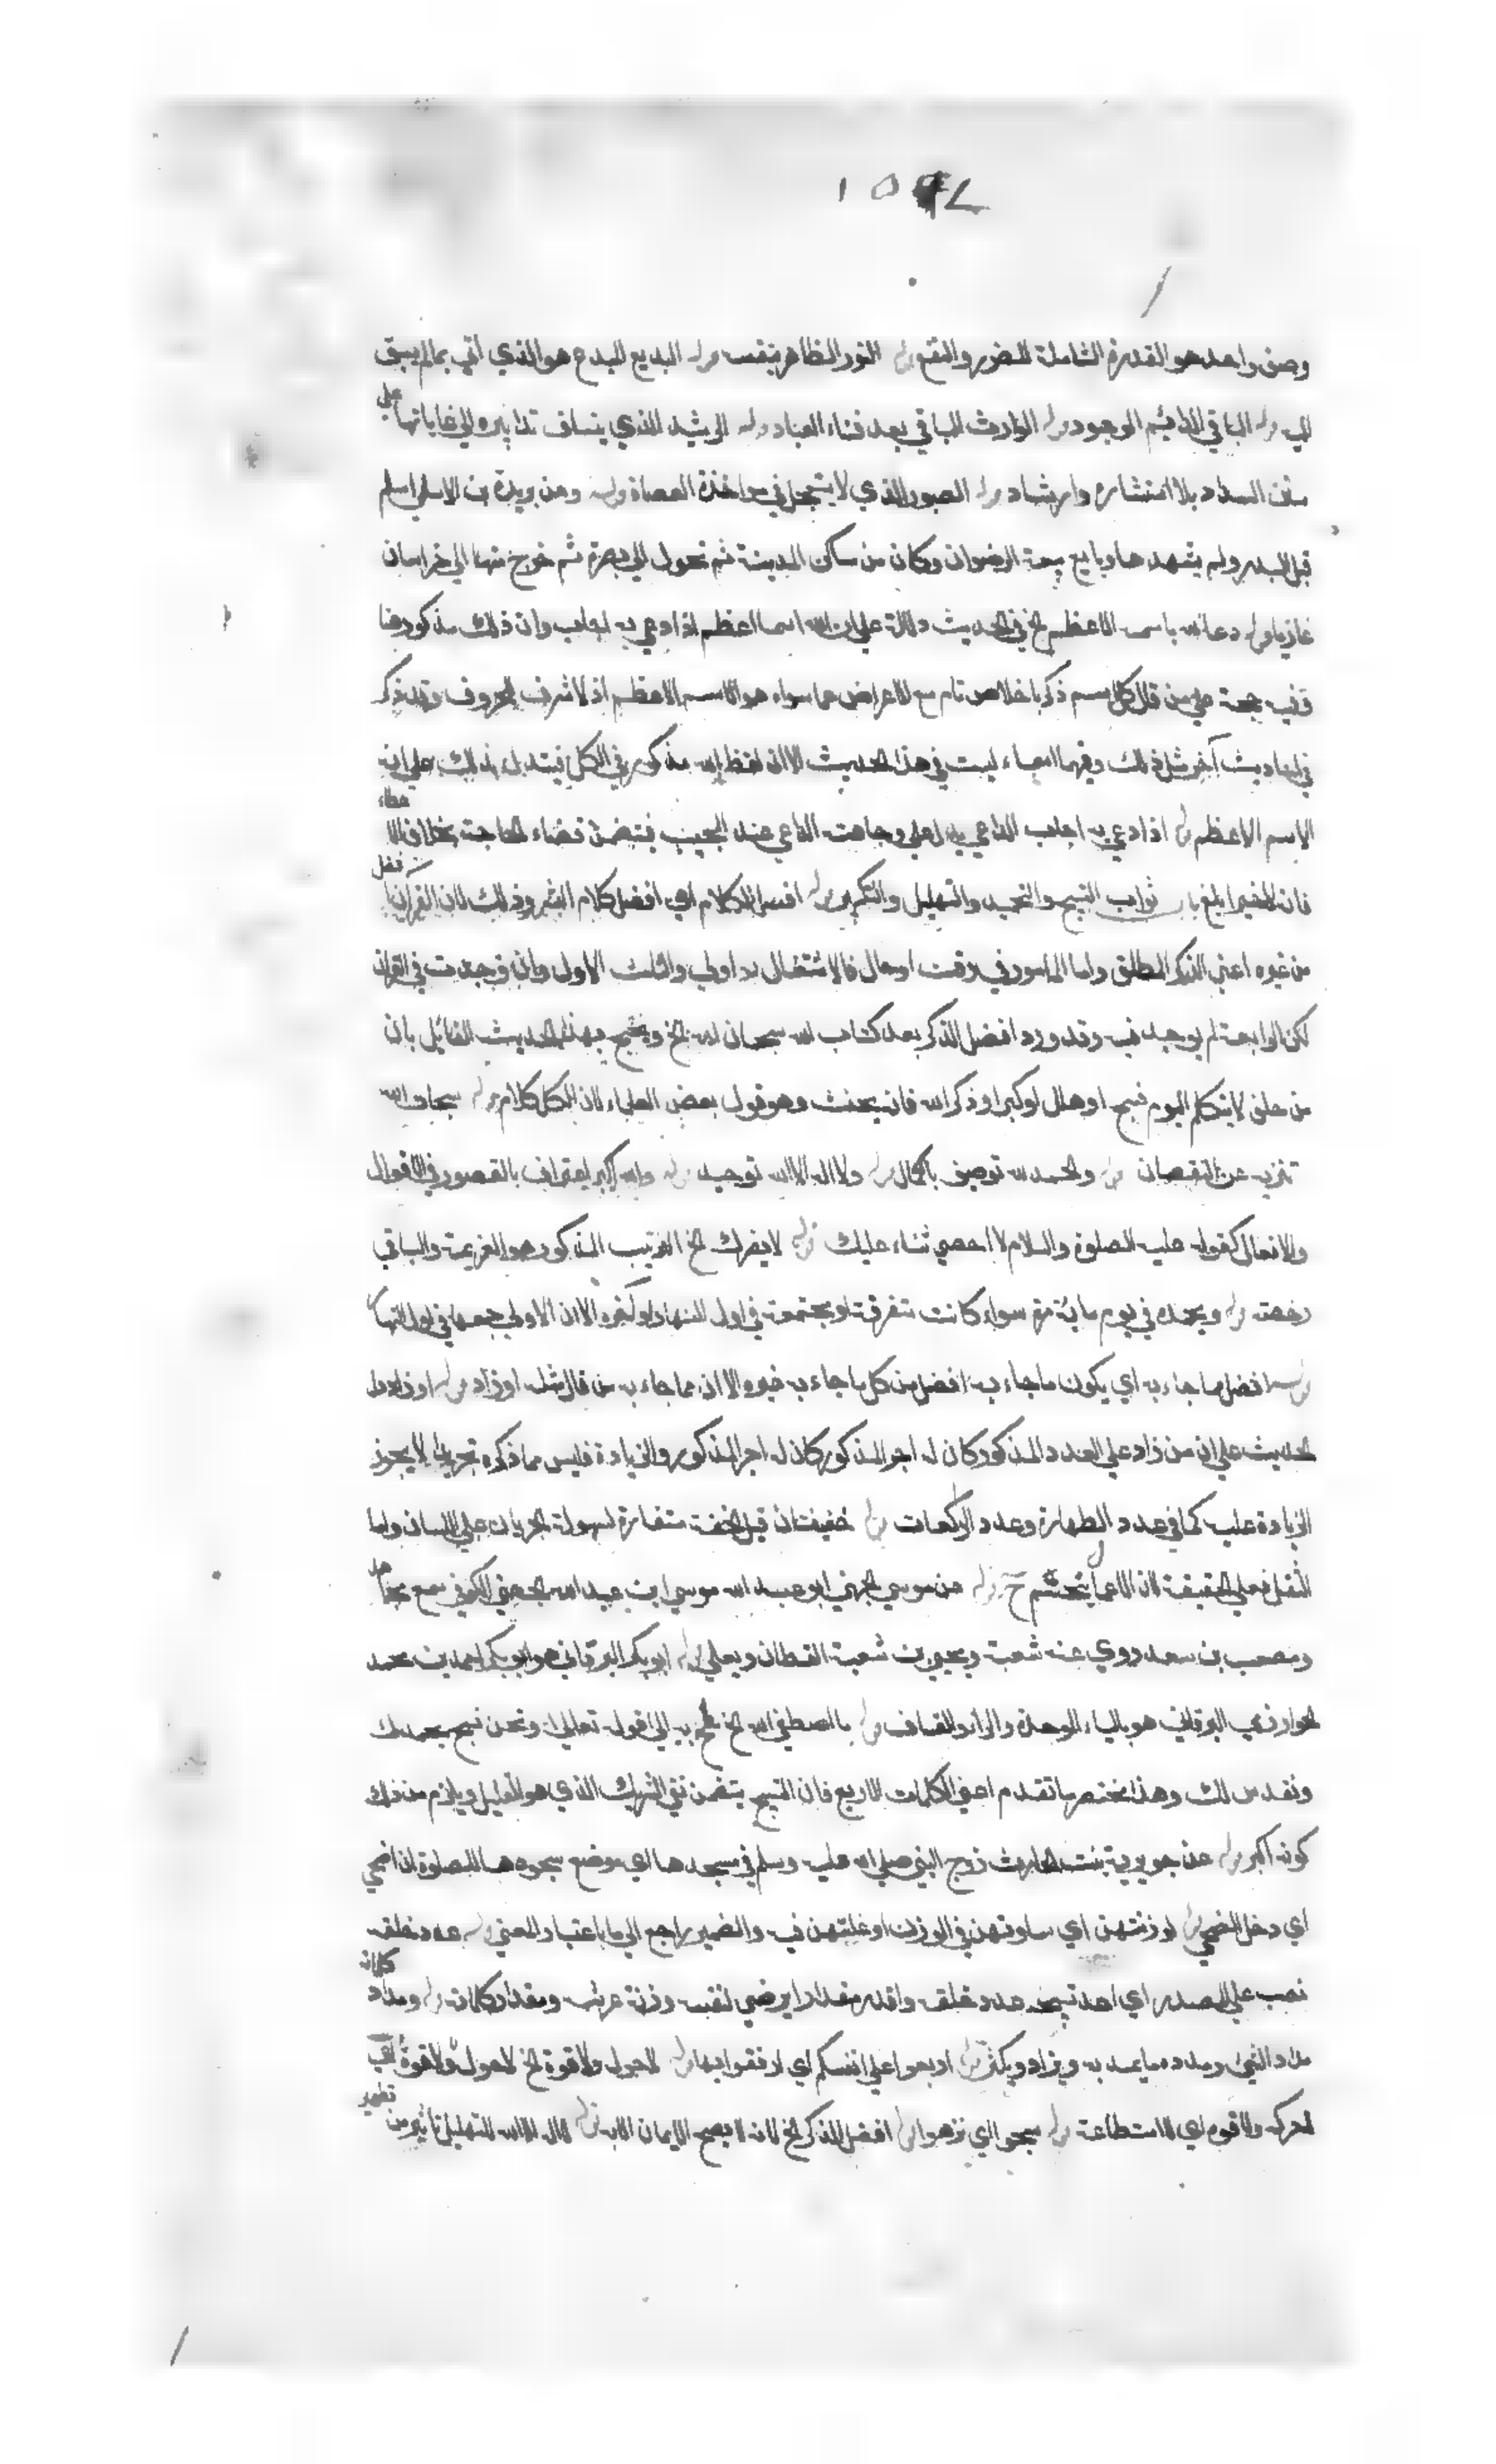 وصف واحد هو القدرة الشاملة للضرر والنفع قوله النور الظاهر بنفسه قوله البديع المبدع هو الذي أتي بما لم يسبق
اليه قوله الباقي الدائم الوجود قوله الوارث الباقي بعد فناء العباد قوله الرشيد الذي ينساق تدابيره الي غاياتها علي
سنن السداد بلا استشارة وارشاد قوله الصبور الذي لا يستعجل في مواخذة العصاة قوله وعن بريدة بن الاسلمي اسلم
قبل البدر ولم يشهدها وبايع بيعة الرضوان وكان من ساكن المدينة ثم تحول الي بصرة ثم خرج منها الي خراسان
غازيا قوله دعا الله باسمه الاعظم الخ في الحديث دلالة علي ان لله اسما اعظم اذا دعي به اجاب وان ذلك مذكور هنا
وفيه حجة علي من قال كل اسم ذكر باخلاص تام مع الاعراض عما سواه هو الاسم الاعظم اذ لا شرف للحروف وقد ذكر
في احاديث آخر مثل ذلك وفيها اسماء ليست في هذا الحديث الا ان لفظ الله مذكور في الكل فيستدل بذلك علي انه
الاسم الاعظم قوله اذا دعي به اجاب الداعي يدل علي وجاهت الداعي عند المجيب فيتضمن قضاء الحاجة بخلاف الا عطاء
فان الاخير ابلغ باب ثواب التسبيح والتحميد والتهليل والتكبير قوله افضل الكلام اي افضل كلام البشر وذلك لان القرآن افضل
من غيره اعني الذكر المطلق واما المامور في وقت او حال فالاشتغال به اولي والثلث الاول وان وجدت في القران
لكن الرابعة لم يوجد فيه وقد ورد افضل الذكر بعد كتاب الله سبحان الله الخ ويحتج بهذا الحديث القائل بان
من حلف لا يتكلم اليوم فسبح او هلل او كبر او ذكر الله فانه يحنث وهو قول بعض العلماء لان الكل كلام قوله سبحان الله
تنزيه عن النقصان قوله والحمد لله توصيف بالكمال قوله ولا اله الا الله توحيد قوله والله اكبر اعتراف بالقصور في الاقوال
والافعال كقوله عليه الصلوة والسلام لا احصي ثناء عليك قوله لا يضرك الخ الترتيب المذكور هو العزيمة والباقي
رخصة قوله وبحمده في يوم ماية مرة سواء كانت متفرقة او مجتمعة في اول النهار او آخره الا ان الاولي جمعها في اول النهار
قوله افضل مما جاء به اي يكون ما جاء به افضل من كل ما جاء به غيره الا ان مما جاء به من قال مثله او زاد قوله او زاد دل
الحديث علي ان من زاد علي العدد المذكور كان له اجر المذكور والزيادة فليس مما ذكره تحديدا لا يجوز
الزيادة عليه كما في عدد الطهارة وعدد الركعات قوله خفيفتان قيل الخفة مستعارة لسهولة الجريان علي اللسان واما
الثقل فعلي الحقيقة لان الاعمال تتجسم ح قوله عن موسي الجهني ابو عبد الله موسي ابن عبد الله الجهني الكوفي سمع مجاهد
ومصعب بن سعد روي عنه شعبة ويحيي بن شعبة القطان ويعلي قوله ابو بكر البرقاني هو ابو بكر احمد بن محمد
الخوارزمي البرقاني هو بالباء الموحدة والراء والقاف قوله ما اصطفي الله الخ لمح به الي قوله تعالي ونحن نسبح بحمدك
ونقدس لك وهذا مختصر ما تقدم اعني الكلمات الاربع فان التسبيح يتضمن نفي الشريك الذي هو التهليل ويلزم من ذلك
كونه اكبر قوله عن جويرية بنت الحارث زوج النبي صلي الله عليه وسلم في مسجدها اي موضع سجودها للصلوة ان اضحي
اي دخل الضحي قوله لوزنتهن اي ساوتهن في الوزن او غلبتهن فيه والضمير راجع الي ما باعتبار المعني قوله عدد خلقه
نصب علي المصدر اي اعد تسبيحه عدد خلقه واقدر مقدار ما يرضي لنفسه وزنة عرشه ومقدار كلماته قوله ومداد كلماته
مداد الشيء ومدده ما يمد به ويزاد ويكثر قوله اربعوا علي انفسكم اي ارفقوا بها قوله لا حول ولا قوة الخ لا حول ولا قوة اي
لا حركة ولا قوة اي الاستطاعة قوله سبحوا اي نزهوا قوله افضل الذكر الخ لانه لا يصح الايمان الا به قوله لا اله الا الله للتهليل تاثير من تطهير